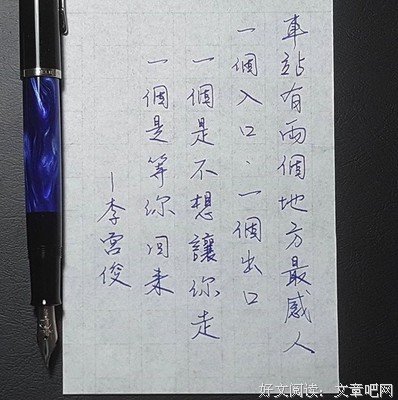 車站有兩個地方最感人
一個入口、一個出口
一個是不想讓你走
一個是等你回来
—李宮俊
好文阅读:文章吧网